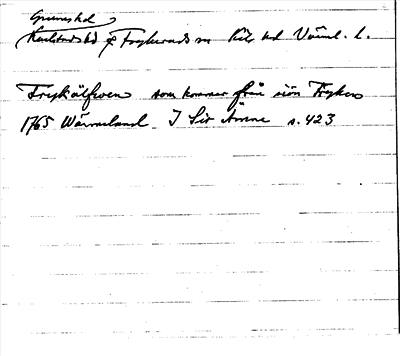 Grums hd
Karlstads hd o Frykerud sn Kils hd Värml. l.
Frykälfven som kommer från siön Fryken
1765 Wärmeland I Siö Ämne s. 423